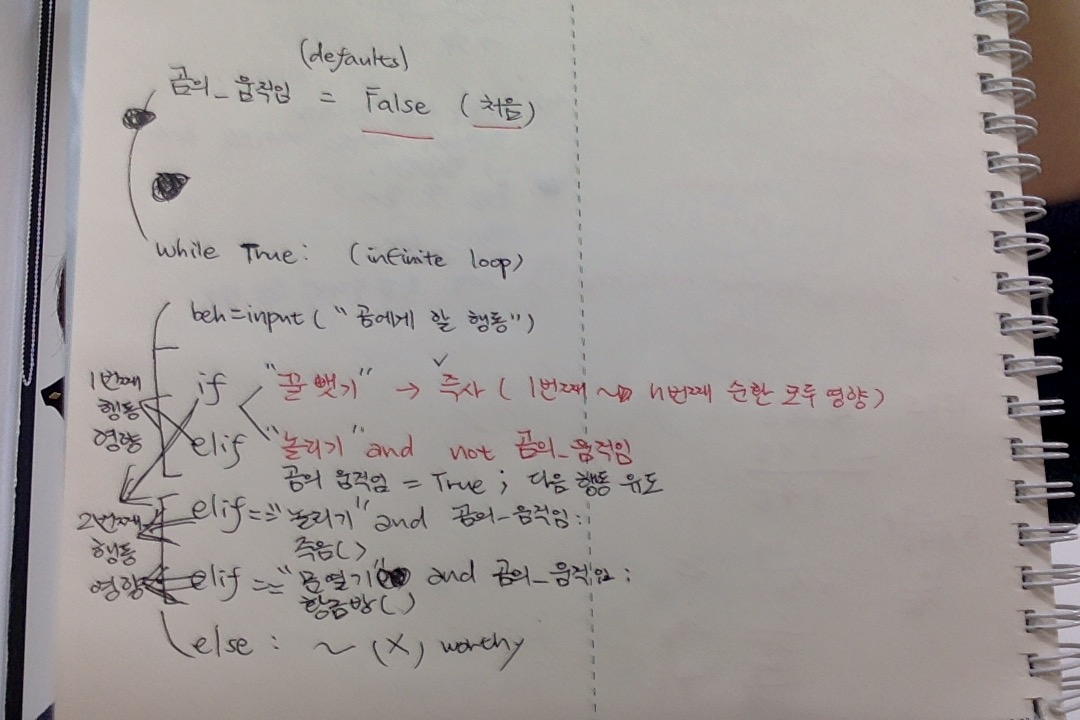 (defaults)
곰의_움직임 = False (처음)
while True: (infinite loop)
beh=input("곰에게 할 행동")
1번째 행동 영향
if "꿀 뺏기" → 즉사 (1번째 ~ n번째 순환 모두 영향)
elif "놀리기" and not 곰의_움직임
곰의 움직임 = True ; 다음 행동 유도
2번째 행동 영향
elif == "놀리기" and 곰의_움직임:
죽음()
elif == "문열기" and 곰의_움직임:
황금방()
else: ~ (X) worthy